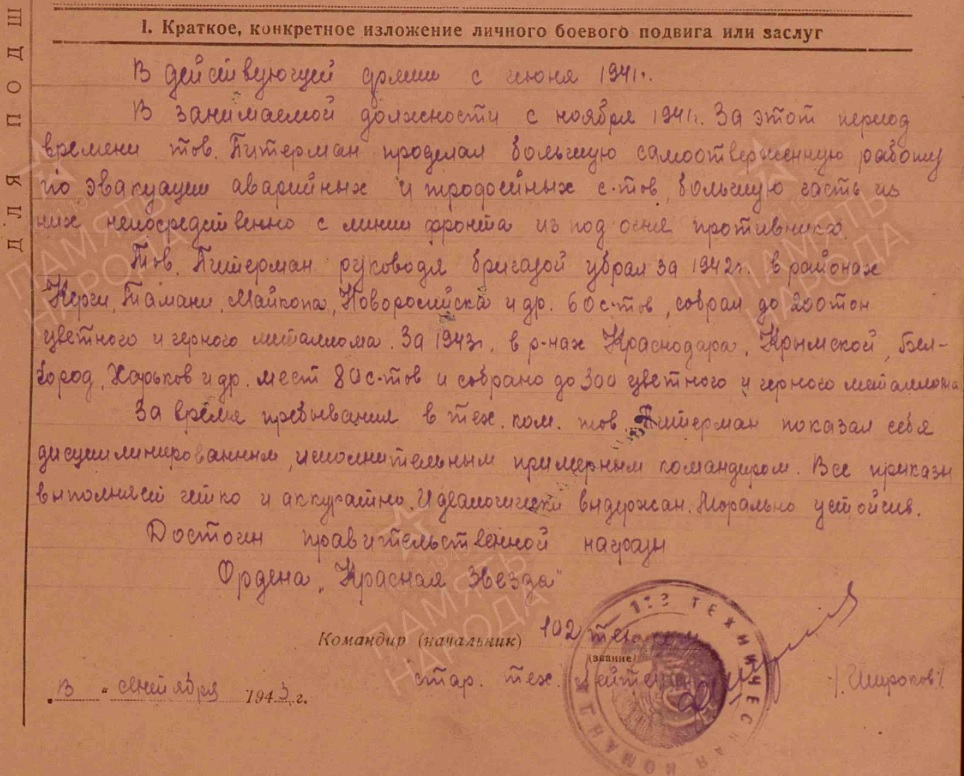 ДЛЯ ПОДШ
I. Краткое, конкретное изложение личного боевого подвига или заслуг
В действующей армии с июня 1941г.
В занимаемой должности с ноября 1941г. За этот период
времени тов. Питерман проделал большую самоотверженную работу
по эвакуации аварийных и трофейных с-тов, большую часть из
них непосредственно с линии фронта из под огня противника.
Тов. Питерман руководя бригадой убрал за 1942г. в районах
Керчи, Тамани, Майкопа, Новоросийска и др. 60 с-тов, собрал до 200 тон
цветного и черного металлома. За 1943г. в р-нах Краснодара, Крымской, Бел-
город, Харьков и др. мест 80 с-тов и собрано до 300 цветного и черного металлома
За время пребывания в тех. ком. тов Питерман показал себя
дисциплинированным, исполнительным примерным командиром. Все приказы
выполняет четко и аккуратно. Идеологически выдержан. Морально устойчив.
Достоин правительственной награды
Ордена „Красная Звезда"
Командир (начальник) 102 тех. ком
(звание)
стар. тех. лейтенант
/Широков/
" сентября 1943 г.
ТЕХНИЧЕСКАЯ КОМАНД
ПАМЯТЬ НАРОДА
ПАМЯТЬ НАРОДА
ПАМЯТЬ НАРОДА